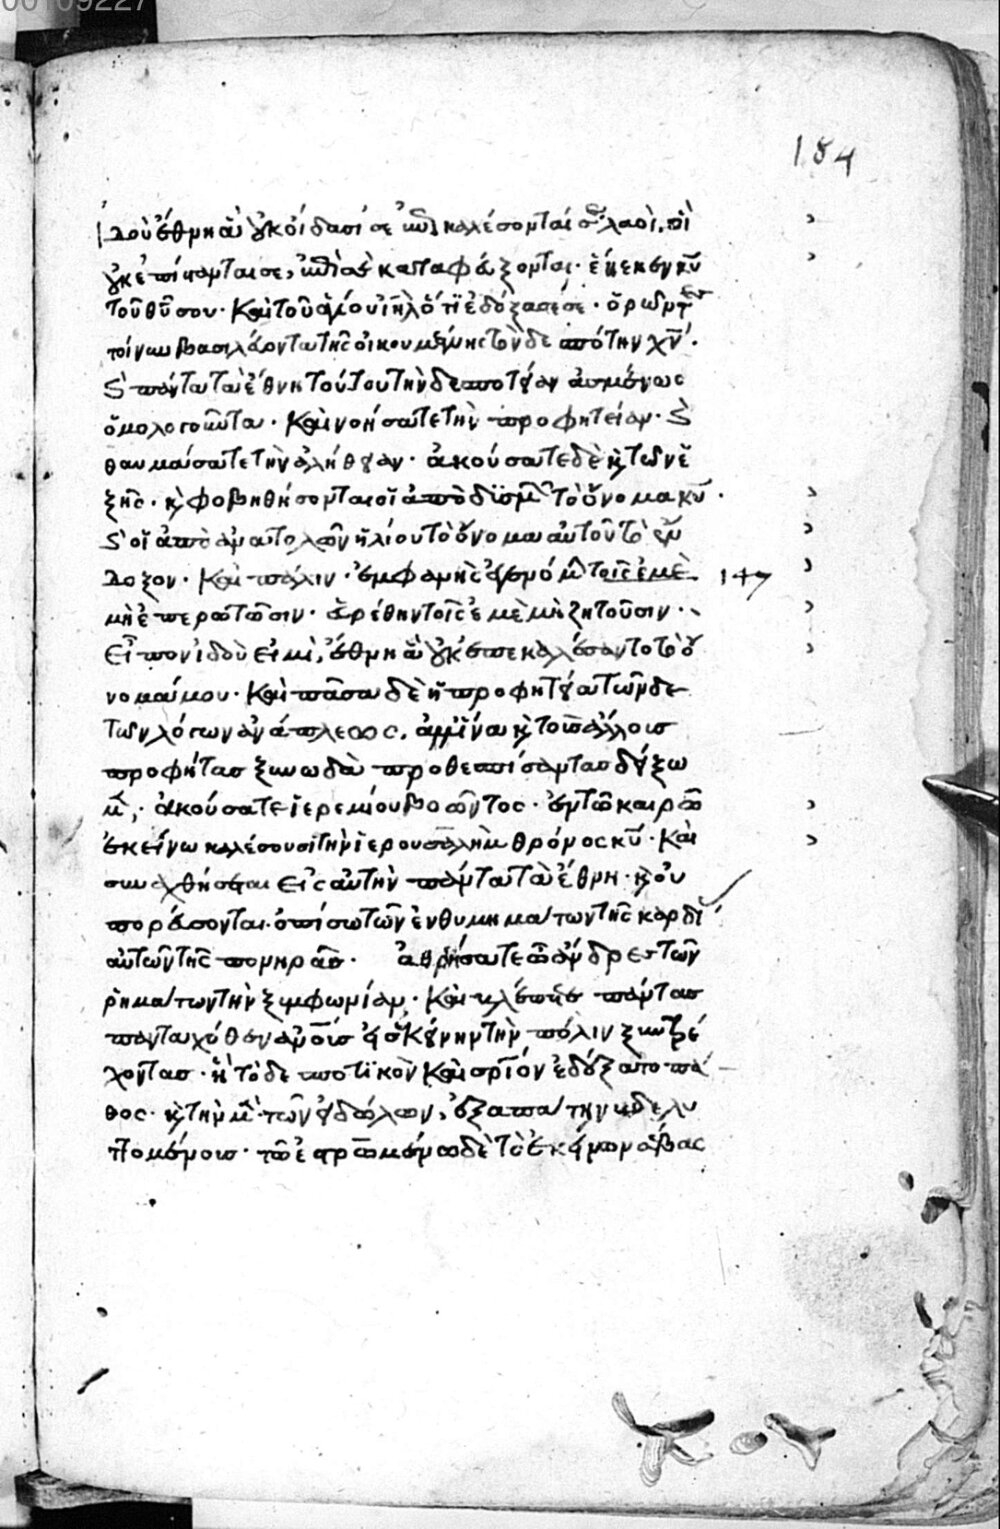 00109227
184
ἰδοὺ ἔθνη ἃ οὐκ οἴδασί σε καλέσονταί σε, λαοὶ, οἳ
οὐκ ἐπίστανταί σε, ἐπὶ σὲ καταφεύξονται· ἕνεκεν κυ
τοῦ θυ σου· καὶ τοῦ ἁγίου ιηλ ὅτι ἐδόξασέ σε· ὁρῶντες
τοίνυν βασιλεύοντα τῆς οἰκουμένης τὸν δεσπότην χν·
καὶ πάντα τὰ ἔθνη τούτου τὴν δεσποτείαν ἀσμένως
ὁμολογοῦντα· καὶ νοήσατε τὴν προφητείαν· καὶ
θαυμάσατε τὴν ἀλήθειαν· ἀκούσατε δὲ καὶ τῶν ἑ
ξῆς· καὶ φοβηθήσονται οἱ ἀπὸ δυσμῶν τὸ ὄνομα κυ·
καὶ οἱ ἀπὸ ἀνατολῶν ἡλίου τὸ ὄνομα αὐτοῦ τὸ ἔν
δοξον· καὶ πάλιν· ἐμφανὴς ἐγενόμην τοῖς ἐμὲ 147
μὴ ἐπερωτῶσιν· εὑρέθην τοῖς ἐμὲ μὴ ζητοῦσιν·
εἶπον ἰδοὺ εἰμὶ, ἔθνη ἃ οὐκ ἐπεκαλέσαντο τὸ ὄ
νομά μου· καὶ πᾶσα δὲ ἡ προφητεία τῶνδε
τῶν λόγων ἀνάπλεως, ἀλλ' ἵνα καὶ τοὺς ἄλλους
προφήτας ξυνωδὰ προθεσπίσαντας δείξω
μεν, ἀκούσατε ἱερεμίου βοῶντος· ἐν τῶ καιρῶ
ἐκείνω καλέσουσι τὴν ἱερουσαλὴμ θρόνος κυ· καὶ
συναχθήσεται εἰς αὐτὴν πάντα τὰ ἔθνη· καὶ οὐ
πορεύσονται ὀπίσω τῶν ἐνθυμημάτων τῆς καρδί
αὐτῶν τῆς πονηρᾶς· ἀθρήσατε ὦ ἄνδρες τῶν
ῥημάτων τὴν ξυμφωνίαν· καὶ βλέποντες πάντας
πανταχόθεν ἀνοὺς εἰς ἐκείνην τὴν πόλιν ξυντρέ
χοντας· ἣ τὸ δεσποτικὸν καὶ σριον ἐδέξατο πά
θος· καὶ τὴν μὲν τῶν εἰδώλων, ἐξαπάτην βδελυ
ττομένους· τῶ ἐσρωμένω δὲ τὸ ἐκείνων σέβας